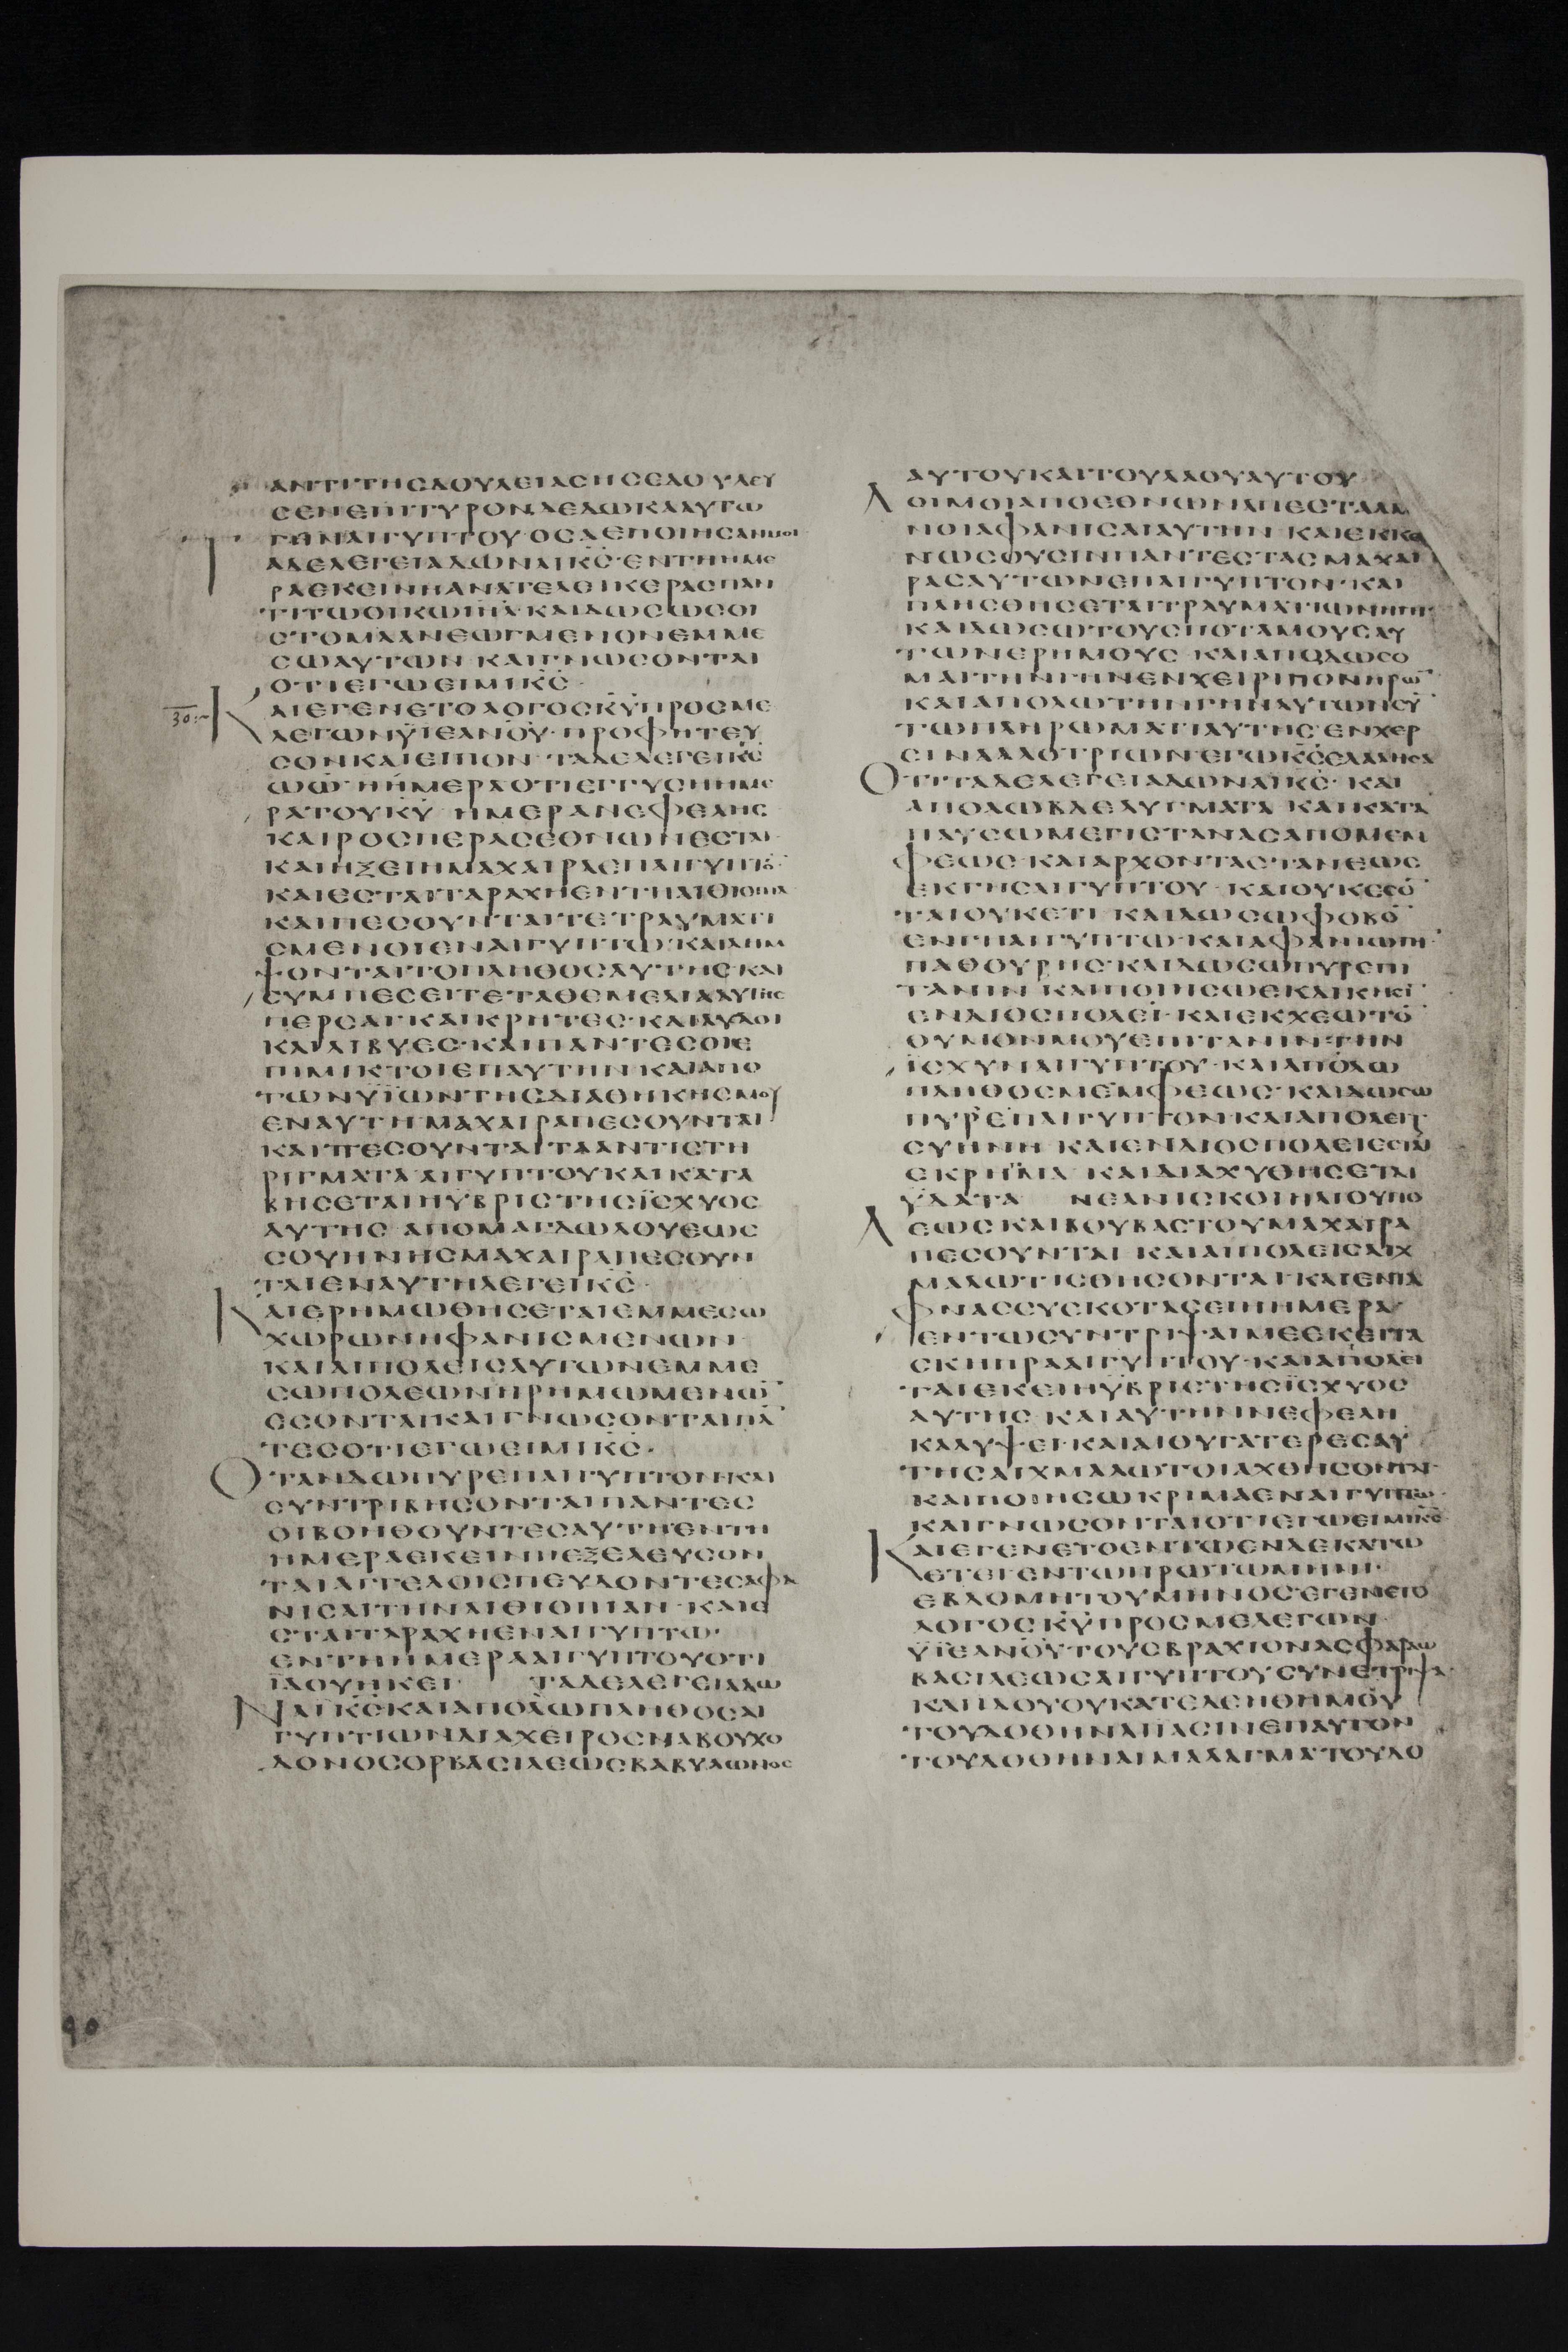 ΑΝΤΙΤΗϹΔΟΥΛΕΙΑϹΗϹΕΔΟΥΛΕΥ
ϹΕΝΕΠΙΤΥΡΟΝΔΕΔΩΚΑΑΥΤΩ
ΓΗΝΑΙΓΥΠΤΟΥ·ΟϹΑΕΠΟΙΗϹΑΝΜΟΙ
ΤΑΔΕΛΕΓΕΙΑΔΩΝΑΙΚ̅Ϲ̅·ΕΝΤΗΗΜΕ
ΡΑΕΚΕΙΝΗΑΝΑΤΕΛΕΙΚΕΡΑϹΠΑΝ
ΤΙΤΩΟΙΚΩΙ̅Η̅Λ̅·ΚΑΙΔΩϹΩϹΟΙ
ϹΤΟΜΑΑΝΕΩΓΜΕΝΟΝΕΜΜΕ
ϹΩΑΥΤΩΝ ΚΑΙΓΝΩϹΟΝΤΑΙ
ΟΤΙΕΓΩΕΙΜΙΚ̅Ϲ̅
30:~ ΚΑΙΕΓΕΝΕΤΟΛΟΓΟϹΚ̅Υ̅ΠΡΟϹΜΕ
ΛΕΓΩΝΫΙΕΑΝ̅Ο̅Υ̅·ΠΡΟΦΗΤΕΥ
ϹΟΝΚΑΙΕΙΠΟΝ·ΤΑΔΕΛΕΓΕΙΚ̅Ϲ̅
ΩΩ·ΗΗΜΕΡΑΟΤΙΕΓΓΥϹΗΗΜΕ
ΡΑΤΟΥΚ̅Υ̅ ΗΜΕΡΑΝΕΦΕΛΗϹ
ΚΑΙΡΟϹΠΕΡΑϹΕΘΝΩΝΕϹΤΑΙ
ΚΑΙΗΞΕΙΗΜΑΧΑΙΡΑΕΠΑΙΓΥΠΤΙΟ̅·
ΚΑΙΕϹΤΑΙΤΑΡΑΧΗΕΝΤΗΑΙΘΙΟΠΙΑ
ΚΑΙΠΕϹΟΥΝΤΑΙΤΕΤΡΑΥΜΑΤΙ
ϹΜΕΝΟΙΕΝΑΙΓΥΠΤΩ·ΚΑΙΛΗΜ
ΨΟΝΤΑΙΤΟΠΛΗΘΟϹΑΥΤΗϹ·ΚΑΙ
ϹΥΜΠΕϹΕΙΤΕΤΑΘΕΜΕΛΙΑΑΥΤΗϹ
ΠΕΡϹΑΙ·ΚΑΙΚΡΗΤΕϹ·ΚΑΙΛΥΔΟΙ
ΚΑΙΛΙΒΥΕϹ·ΚΑΙΠΑΝΤΕϹΟΙΕ
ΠΙΜΙΚΤΟΙΕΠΑΥΤΗΝ ΚΑΙΑΠΟ
ΤΩΝΫΪΩΝΤΗϹΔΙΑΘΗΚΗϹΜΟΥ
ΕΝΑΥΤΗΜΑΧΑΙΡΑΠΕϹΟΥΝΤΑΙ
ΚΑΙΠΕϹΟΥΝΤΑΙΤΑΑΝΤΙϹΤΗ
ΡΙΓΜΑΤΑΑΙΓΥΠΤΟΥΚΑΙΚΑΤΑ
ΒΗϹΕΤΑΙΗΫΒΡΙϹΤΗϹΪϹΧΥΟϹ
ΑΥΤΗϹ ΑΠΟΜΑΓΔΩΛΟΥΕΩϹ
ϹΟΥΗΝΗϹΜΑΧΑΙΡΑΠΕϹΟΥΝ
ΤΑΙΕΝΑΥΤΗΛΕΓΕΙΚ̅Ϲ̅·
ΚΑΙΕΡΗΜΩΘΗϹΕΤΑΙΕΜΜΕϹΩ
ΧΩΡΩΝΗΦΑΝΙϹΜΕΝΩΝ·
ΚΑΙΑΙΠΟΛΕΙϹΑΥΤΩΝΕΜΜΕ
ϹΩΠΟΛΕΩΝΗΡΗΜΩΜΕΝΩ̅
ΕϹΟΝΤΑΙ·ΚΑΙΓΝΩϹΟΝΤΑΙΠΑ̅
ΤΕϹΟΤΙΕΓΩΕΙΜΙΚ̅Ϲ̅·
ΟΤΑΝΔΩΠΥΡΕΠΑΙΓΥΠΤΟΝ·ΚΑΙ
ϹΥΝΤΡΙΒΗϹΟΝΤΑΙΠΑΝΤΕϹ
ΟΙΒΟΗΘΟΥΝΤΕϹΑΥΤΗ·ΕΝΤΗ
ΗΜΕΡΑΕΚΕΙΝΗΕΞΕΛΕΥϹΟΝ
ΤΑΙΑΓΓΕΛΟΙϹΠΕΥΔΟΝΤΕϹΑΦΑ
ΝΙϹΑΙΤΗΝΑΙΘΙΟΠΙΑΝ·ΚΑΙΕ
ϹΤΑΙΤΑΡΑΧΗΕΝΑΙΓΥΠΤΩ·
ΕΝΤΗΗΜΕΡΑΑΙΓΥΠΤΟΥΟΤΙ
ΪΔΟΥΗΚΕΙ ΤΑΔΕΛΕΓΕΙΑΔΩ
ΝΑΙΚ̅Ϲ̅ΚΑΙΑΠΟΛΩΠΛΗΘΟϹΑΙ
ΓΥΠΤΙΩΝΔΙΑΧΕΙΡΟϹΝΑΒΟΥΧΟ
ΔΟΝΟϹΟΡΒΑϹΙΛΕΩϹΒΑΒΥΛΩΝΟϹ
ΑΥΤΟΥΚΑΙΤΟΥΛΑΟΥΑΥΤΟΥ
ΛΟΙΜΟΙΑΠΟΕΘΝΩΝΑΠΕϹΤΑΛΜ
ΝΟΙΑΦΑΝΙϹΑΙΑΥΤΗΝ ΚΑΙΕΚΚΕ
ΝΩϹΟΥϹΙΝΠΑΝΤΕϹΤΑϹΜΑΧΑΙ
ΡΑϹΑΥΤΩΝΕΠΑΙΓΥΠΤΟΝ·ΚΑΙ
ΠΛΗϹΘΗϹΕΤΑΙΤΡΑΥΜΑΤΙΩΝΗΓΗ·
ΚΑΙΔΩϹΩΤΟΥϹΠΟΤΑΜΟΥϹΑΥ
ΤΩΝΕΡΗΜΟΥϹ ΚΑΙΑΠΟΔΩϹΟ
ΜΑΙΤΗΝΓΗΝΕΝΧΕΙΡΙΠΟΝΗΡΩ̅·
ΚΑΙΑΠΟΛΩΤΗΝΓΗΝΑΥΤΩΝϹΥ̅
ΤΩΠΛΗΡΩΜΑΤΙΑΥΤΗϹ·ΕΝΧΕΡ
ϹΙΝΑΛΛΟΤΡΙΩΝ·ΕΓΩΚ̅Ϲ̅ΕΛΑΛΗϹΑ
ΟΤΙΤΑΔΕΛΕΓΕΙΑΔΩΝΑΪΚ̅Ϲ̅· ΚΑΙ
ΑΠΟΛΩΒΔΕΛΥΓΜΑΤΑ ΚΑΙΚΑΤΑ
ΠΑΥϹΩΜΕΓΙϹΤΑΝΑϹΑΠΟΜΕΜ
ΦΕΩϹ·ΚΑΙΑΡΧΟΝΤΑϹΤΑΝΕΩϹ
ΕΚΓΗϹΑΙΓΥΠΤΟΥ·ΚΑΙΟΥΚΕϹΟ̅·
ΤΑΙΟΥΚΕΤΙ ΚΑΙΔΩϹΩΦΟΒΟ̅
ΕΝΓΗΑΙΓΥΠΤΩ·ΚΑΙΑΦΑΝΙΩΓΗ·
ΠΑΘΟΥΡΗϹ·ΚΑΙΔΩϹΩΠΥΡΕΠΙ
ΤΑΝΙΝ ΚΑΙΠΟΙΗϹΩΕΚΔΙΚΗϹΙ̅
ΕΝΔΙΟϹΠΟΛΕΙ·ΚΑΙΕΚΧΕΩΤΟ̅
ΘΥΜΟΝΜΟΥΕΠΙΤΑΝΙΝ·ΤΗΝ
ΪϹΧΥΝΑΙΓΥΠΤΟΥ·ΚΑΙΑΠΟΛΩ
ΠΛΗΘΟϹΜΕΜΦΕΩϹ·ΚΑΙΔΩϹΩ
ΠΥΡΕΠΑΙΓΥΠΤΟΝ·ΚΑΙΑΠΟΛΕΙΤ
ϹΥΗΝΗ ΚΑΙΕΝΔΙΟϹΠΟΛΕΙΕϹΤΑΙ
ΕΚΡΗΓΜΑ ΚΑΙΔΙΑΧΥΘΗϹΕΤΑΙ
ΫΔΑΤΑ ΝΕΑΝΙϹΚΟΙΗΛΙΟΥΠΟ
ΛΕΩϹΚΑΙΒΟΥΒΑϹΤΟΥΜΑΧΑΙΡΑ
ΠΕϹΟΥΝΤΑΙ ΚΑΙΑΙΠΟΛΕΙϹΑΙΧ
ΜΑΛΩΤΙϹΘΗϹΟΝΤΑΙ·ΚΑΙΕΝΤΑ
ΦΝΑϹϹΥϹΚΟΤΑϹΕΙΗΗΜΕΡΑ
ΕΝΤΩϹΥΝΤΡΙΨΑΙΜΕΕΚΕΙΤΑ
ϹΚΗΠΡΑΑΙΓΥΠΤΟΥ·ΚΑΙΑΠΟΛΕΙ
ΤΑΙΕΚΕΙΗΫΒΡΙϹΤΗϹΪϹΧΥΟϹ
ΑΥΤΗϹ ΚΑΙΑΥΤΗΝΝΕΦΕΛΗ
ΚΑΛΥΨΕΙ·ΚΑΙΑΙΘΥΓΑΤΕΡΕϹΑΥ
ΤΗϹΑΙΧΜΑΛΩΤΟΙΑΧΘΗϹΟΝΤΑΙ·
ΚΑΙΠΟΙΗϹΩΚΡΙΜΑΕΝΑΙΓΥΠΤΩ·
ΚΑΙΓΝΩϹΟΝΤΑΙΟΤΙΕΓΩΕΙΜΙΚ̅Ϲ̅
ΚΑΙΕΓΕΝΕΤΟΕΝΤΩΕΝΔΕΚΑΤΩ
ΕΤΕΙ·ΕΝΤΩΠΡΩΤΩΜΗΝΙ·
ΕΒΔΟΜΗΤΟΥΜΗΝΟϹ·ΕΓΕΝΕΤΟ
ΛΟΓΟϹΚ̅Υ̅ΠΡΟϹΜΕΛΕΓΩΝ
ΫΙΕΑΝ̅Ο̅Υ̅ΤΟΥϹΒΡΑΧΙΟΝΑϹΦΑΡΑΩ
ΒΑϹΙΛΕΩϹΑΙΓΥΠΤΟΥϹΥΝΕΤΡΙΨΑ·
ΚΑΙΪΔΟΥΟΥΚΑΤΕΔΕΗΘΗΜΟΥ
ΤΟΥΔΟΘΗΝΑΙΪΑϹΙΝΕΠΑΥΤΟΝ
ΤΟΥΔΟΘΗΝΑΙΜΑΛΑΓΜΑΤΟΥΔΟ
90